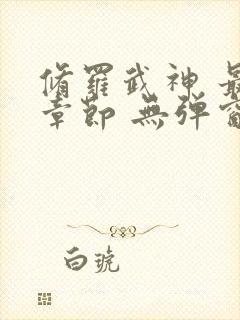 脩羅武神 最
章節 無彈窗
白琥